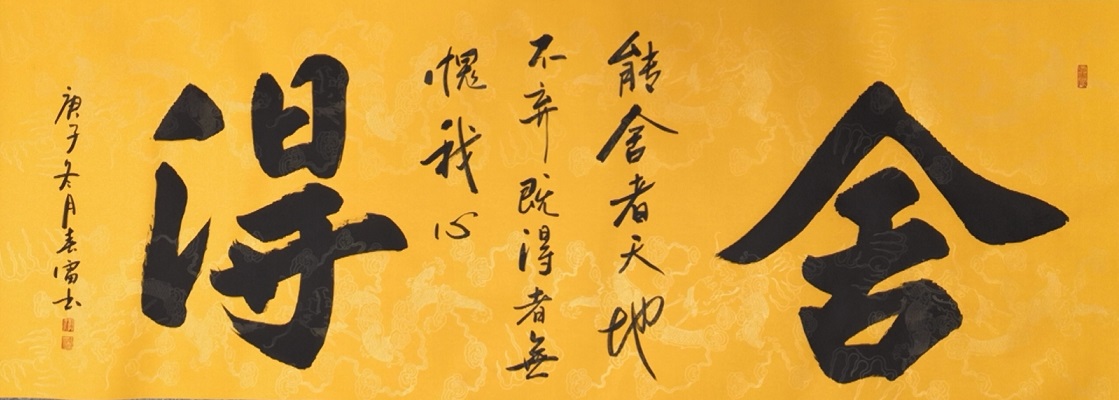 舍
能舍者天地
不弃既得者無
愧我心
得
庚子冬月春雷书